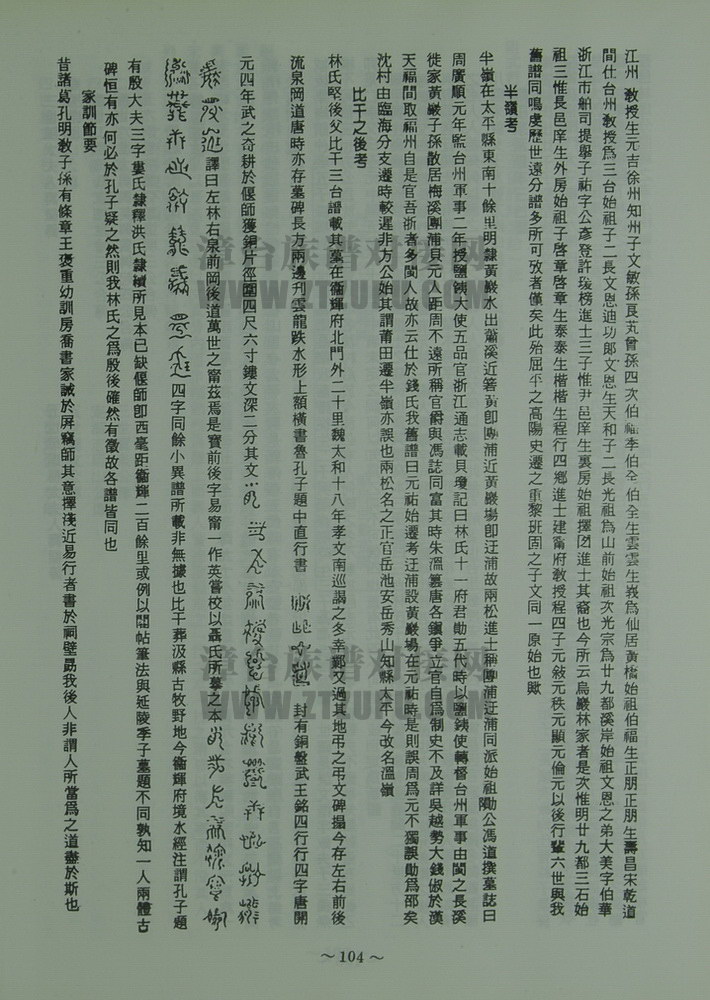 江州　教授生元吉徐州知州子文敏孫良芃曾孫四次伯福季伯全　伯全生雲雲生峩爲仙居黃橋始祖伯福生正朋正朋生壽昌宋乾道
間仕台州教授爲三台始祖子二長文恩迪功郎文恩生天和子二長光祖爲山前始祖次光宗爲廿九都溪岸始祖文恩之弟大美字伯華
浙江市舶司提擧子祐字公彥登許琰榜進士三子惟尹邑庠生裏房始祖擇團進士其裔也今所云烏巖林家者是次惟明廿九都三石始
祖三惟長邑庠生外房始祖子啓章啓章生泰泰生楷楷生程行四鄉進士建甯府教授程四子元敍元秩元顯元倫元以後行輩六世與我
舊譜同鳴虖歷世遠分譜多所可攷者僅矣此殆屈平之高陽史遷之重黎班固之子文同一原始也歟
半嶺考
半嶺在太平縣東南十餘里明隸黃巖水出蕭溪近箬黃卽團浦近黃巖場卽迂浦故兩松進士稱團浦迂浦同派始祖勛公馮道撰墓誌曰
周廣順元年監台州軍事二年授鹽鐵大使五品官浙江通志載貝瓊記曰林氏十一府君勛五代時以鹽鐵使轉督台州軍事由閩之長溪
徙家黃巖子孫散居梅溪團浦貝元人距周不遠所稱官爵與馮誌同富其時朱溫簒唐各鎭爭立官自爲制史不及詳吳越勢大錢俶於漢
天福間取福州自是官吾浙者多閩人故亦云仕於錢氏我舊譜曰元祐始遷考迂浦設黃巖場在元祐時是則誤周爲元不獨誤勛爲邵矣
沈村由臨海分支遷時較遲非方公始其謂莆田遷半嶺亦誤也兩松名之正官岳池安岳秀山知縣太平今改名溫嶺
比干之後考
林氏堅後父比干三台譜載其墓在衞輝府北門外二十里魏太和十八年孝文南巡謁之冬幸鄴又過其地弔之弔文碑搨今存左右前後
流泉岡道唐時亦存墓碑長方兩邊刊雲龍跌水形上額橫書魯孔子題中直行書　封有銅盤武王銘四行行四字唐開
元四年武之奇耕於偃師獲銅片徑圍四尺六寸鏤文深二分其文
譯曰左林右泉前岡後道萬世之甯茲焉是寶前後字易甯一作英嘗校以聶氏所摹之本
四字同餘小異譜所載非無據也比干葬汲縣古牧野地今衞輝府境水經注謂孔子題
有殷大夫三字婁氏隸釋洪氏隸續所見本已缺偃師卽西毫距衞輝二百餘里或例以閣帖筆法與延陵季子墓題不同孰知一人兩體古
碑恒有亦何必於孔子疑之然則我林氏之爲殷後確然有徵故各譜皆同也
家訓節要
昔諸葛孔明敎子係有條章王褒重幼訓房喬書家誡於屛竊師其意擇淺近易行者書於祠壁勗我後人非謂人所當爲之道盡於斯也
～104～
漳台族谱对接网
WWW.ZTZUPU.COM
漳台族谱对接网
WWW.ZTZUPU.COM